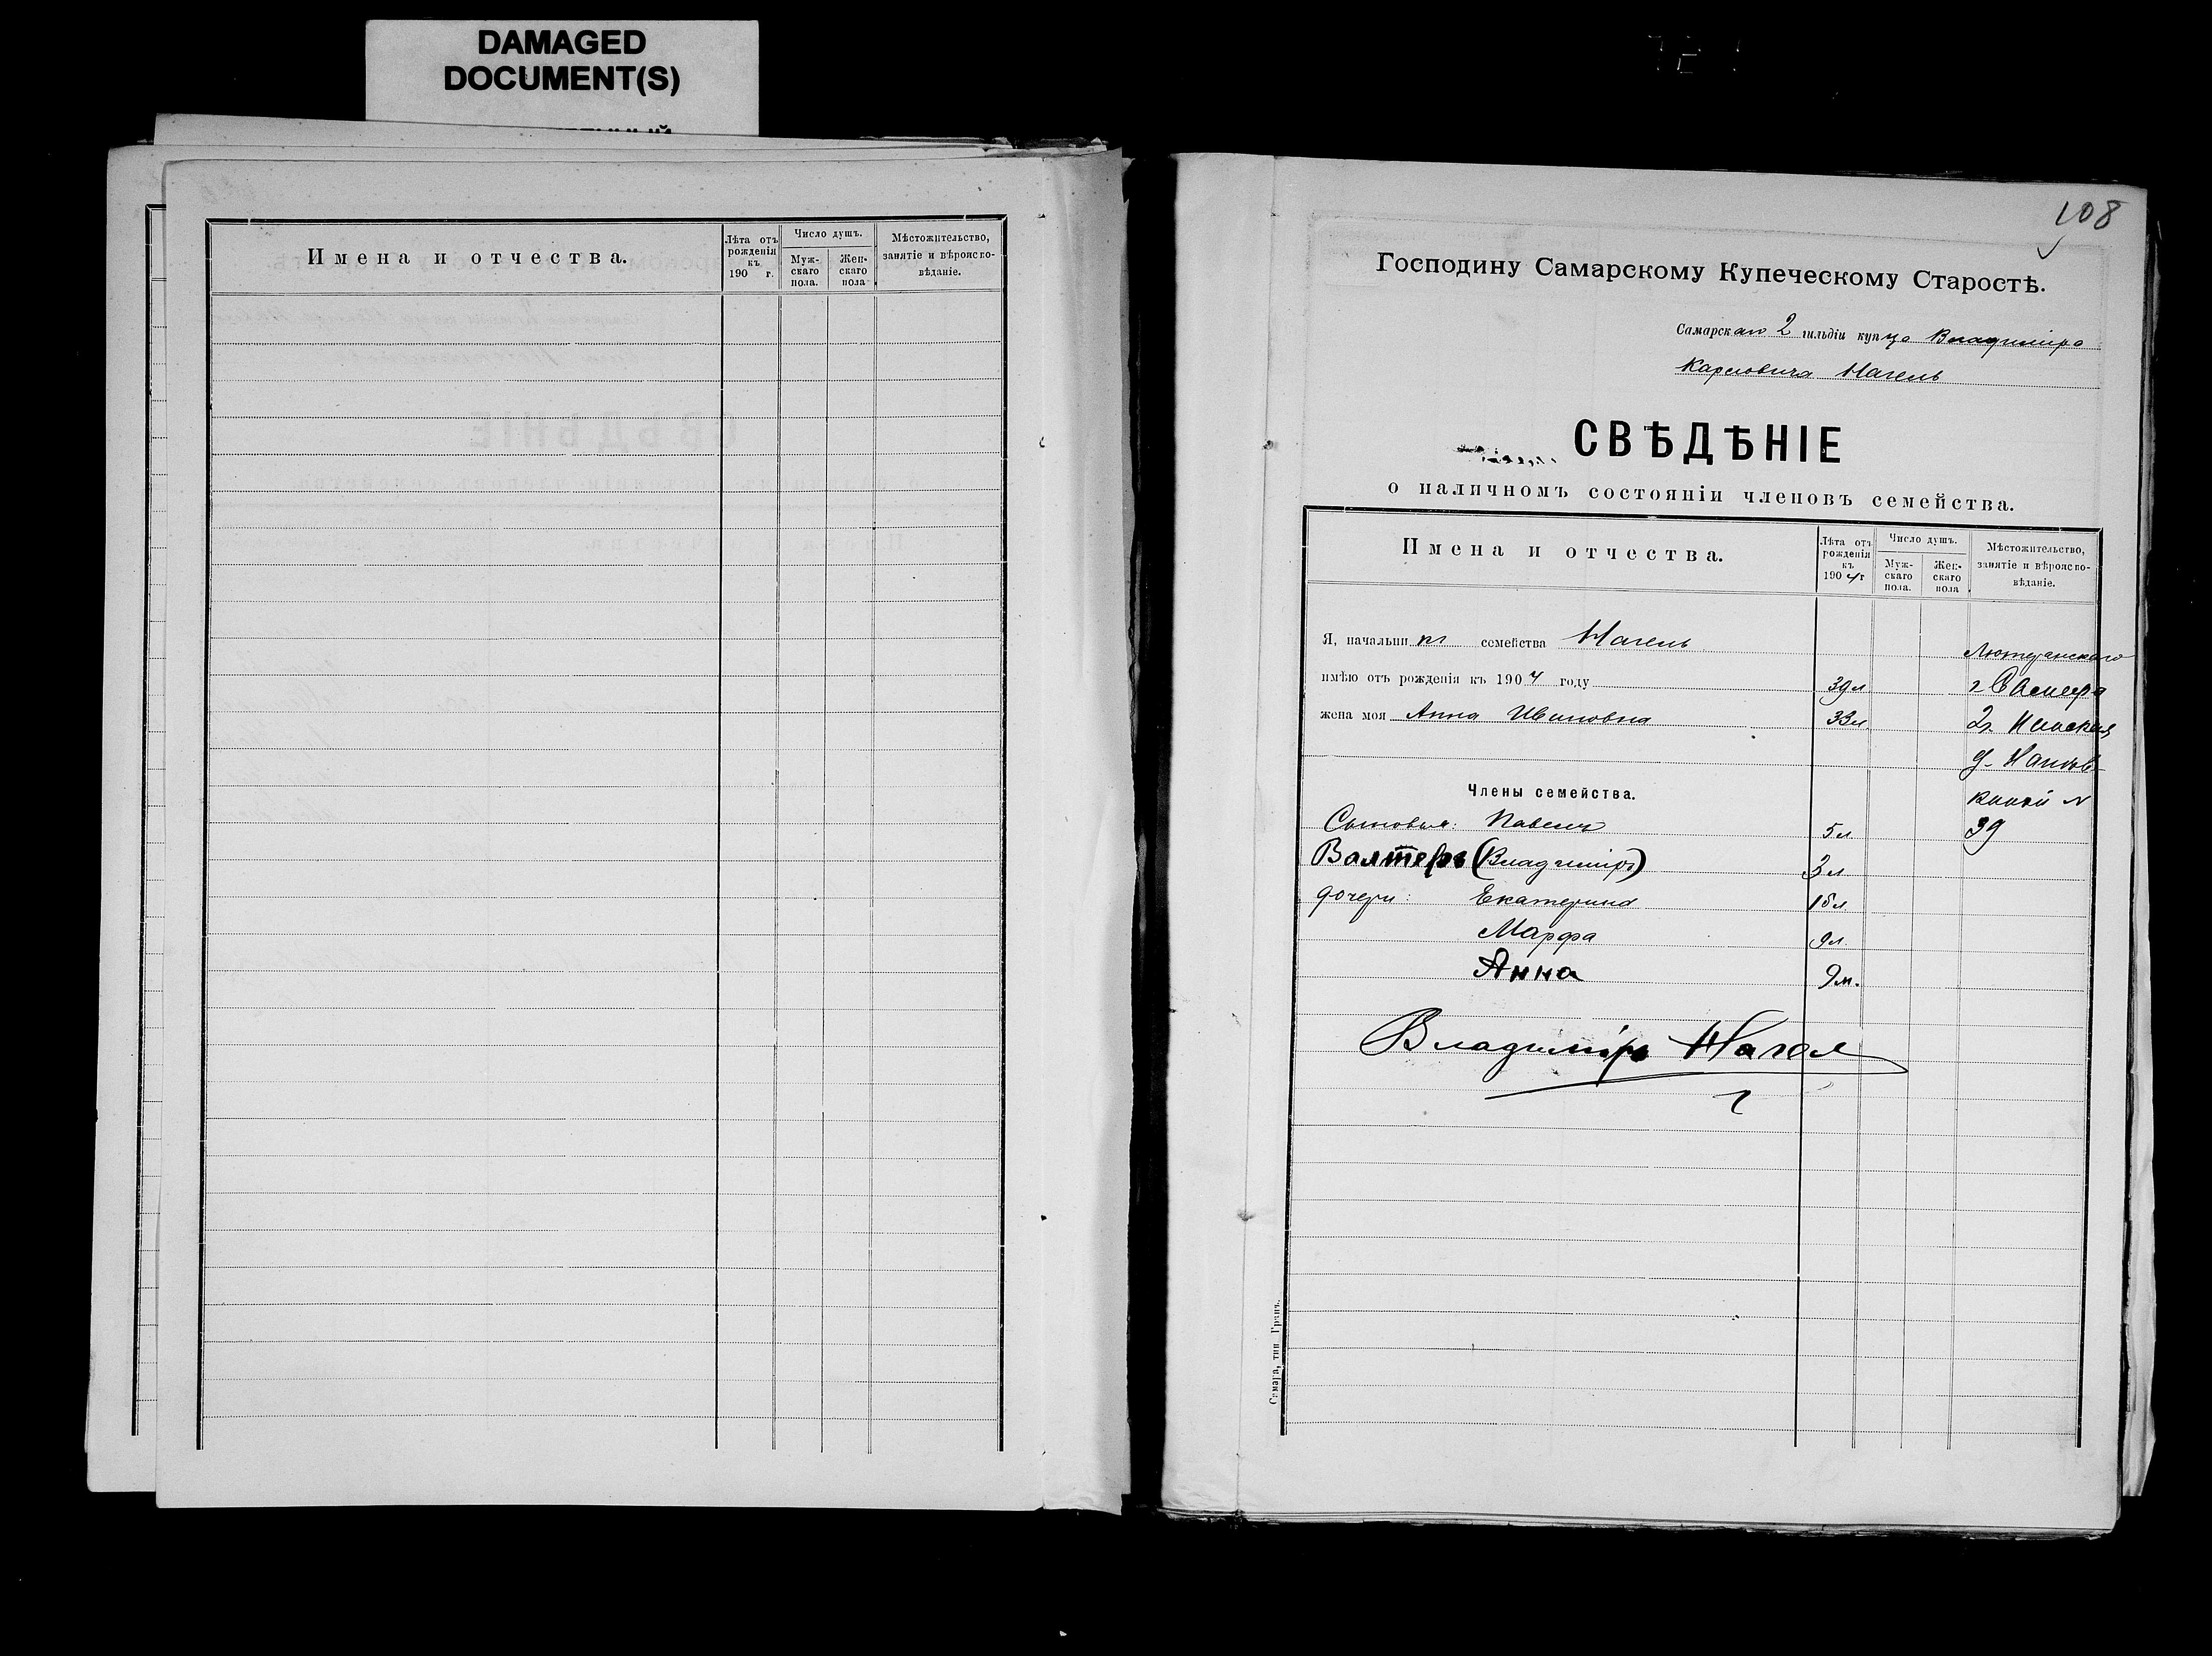 DAMAGED
DOCUMENT(S)
Имена и отчества.
Лѣта отъ рожденія къ 190 г.
Число душъ.
Муж-скаго пола.
Жен-скаго пола
Мѣстожительство, занятіе и вѣроиспо-вѣданіе.
108
Господину Самарскому Купеческому Старостѣ.
Самарскаго 2 гильдіи купца Владиміра
Карловича Нагель
СВѢДѢНІЕ
о наличномъ состояніи членовъ семейства.
Имена и отчества.
Лѣта отъ рожденія къ 1904 г
Число душъ.
Муж-скаго пола.
Жен-скаго пола
Мѣстожительство, занятіе и вѣроиспо-вѣданіе.
Я, начальникъ семейства Нагель
Лютеранскаго
имѣю отъ рожденія къ 1904 году 39 л
жена моя Анна Ивановна 33 л.
Члены семейства.
39
Сыновья: Павелъ 5 л.
Валтеръ (Владиміръ) 3 л
дочери: Екатерина 15 л
Марфа 9 л.
Анна 9 м.
Владиміръ Нагел
Самара, тип Гранъ.